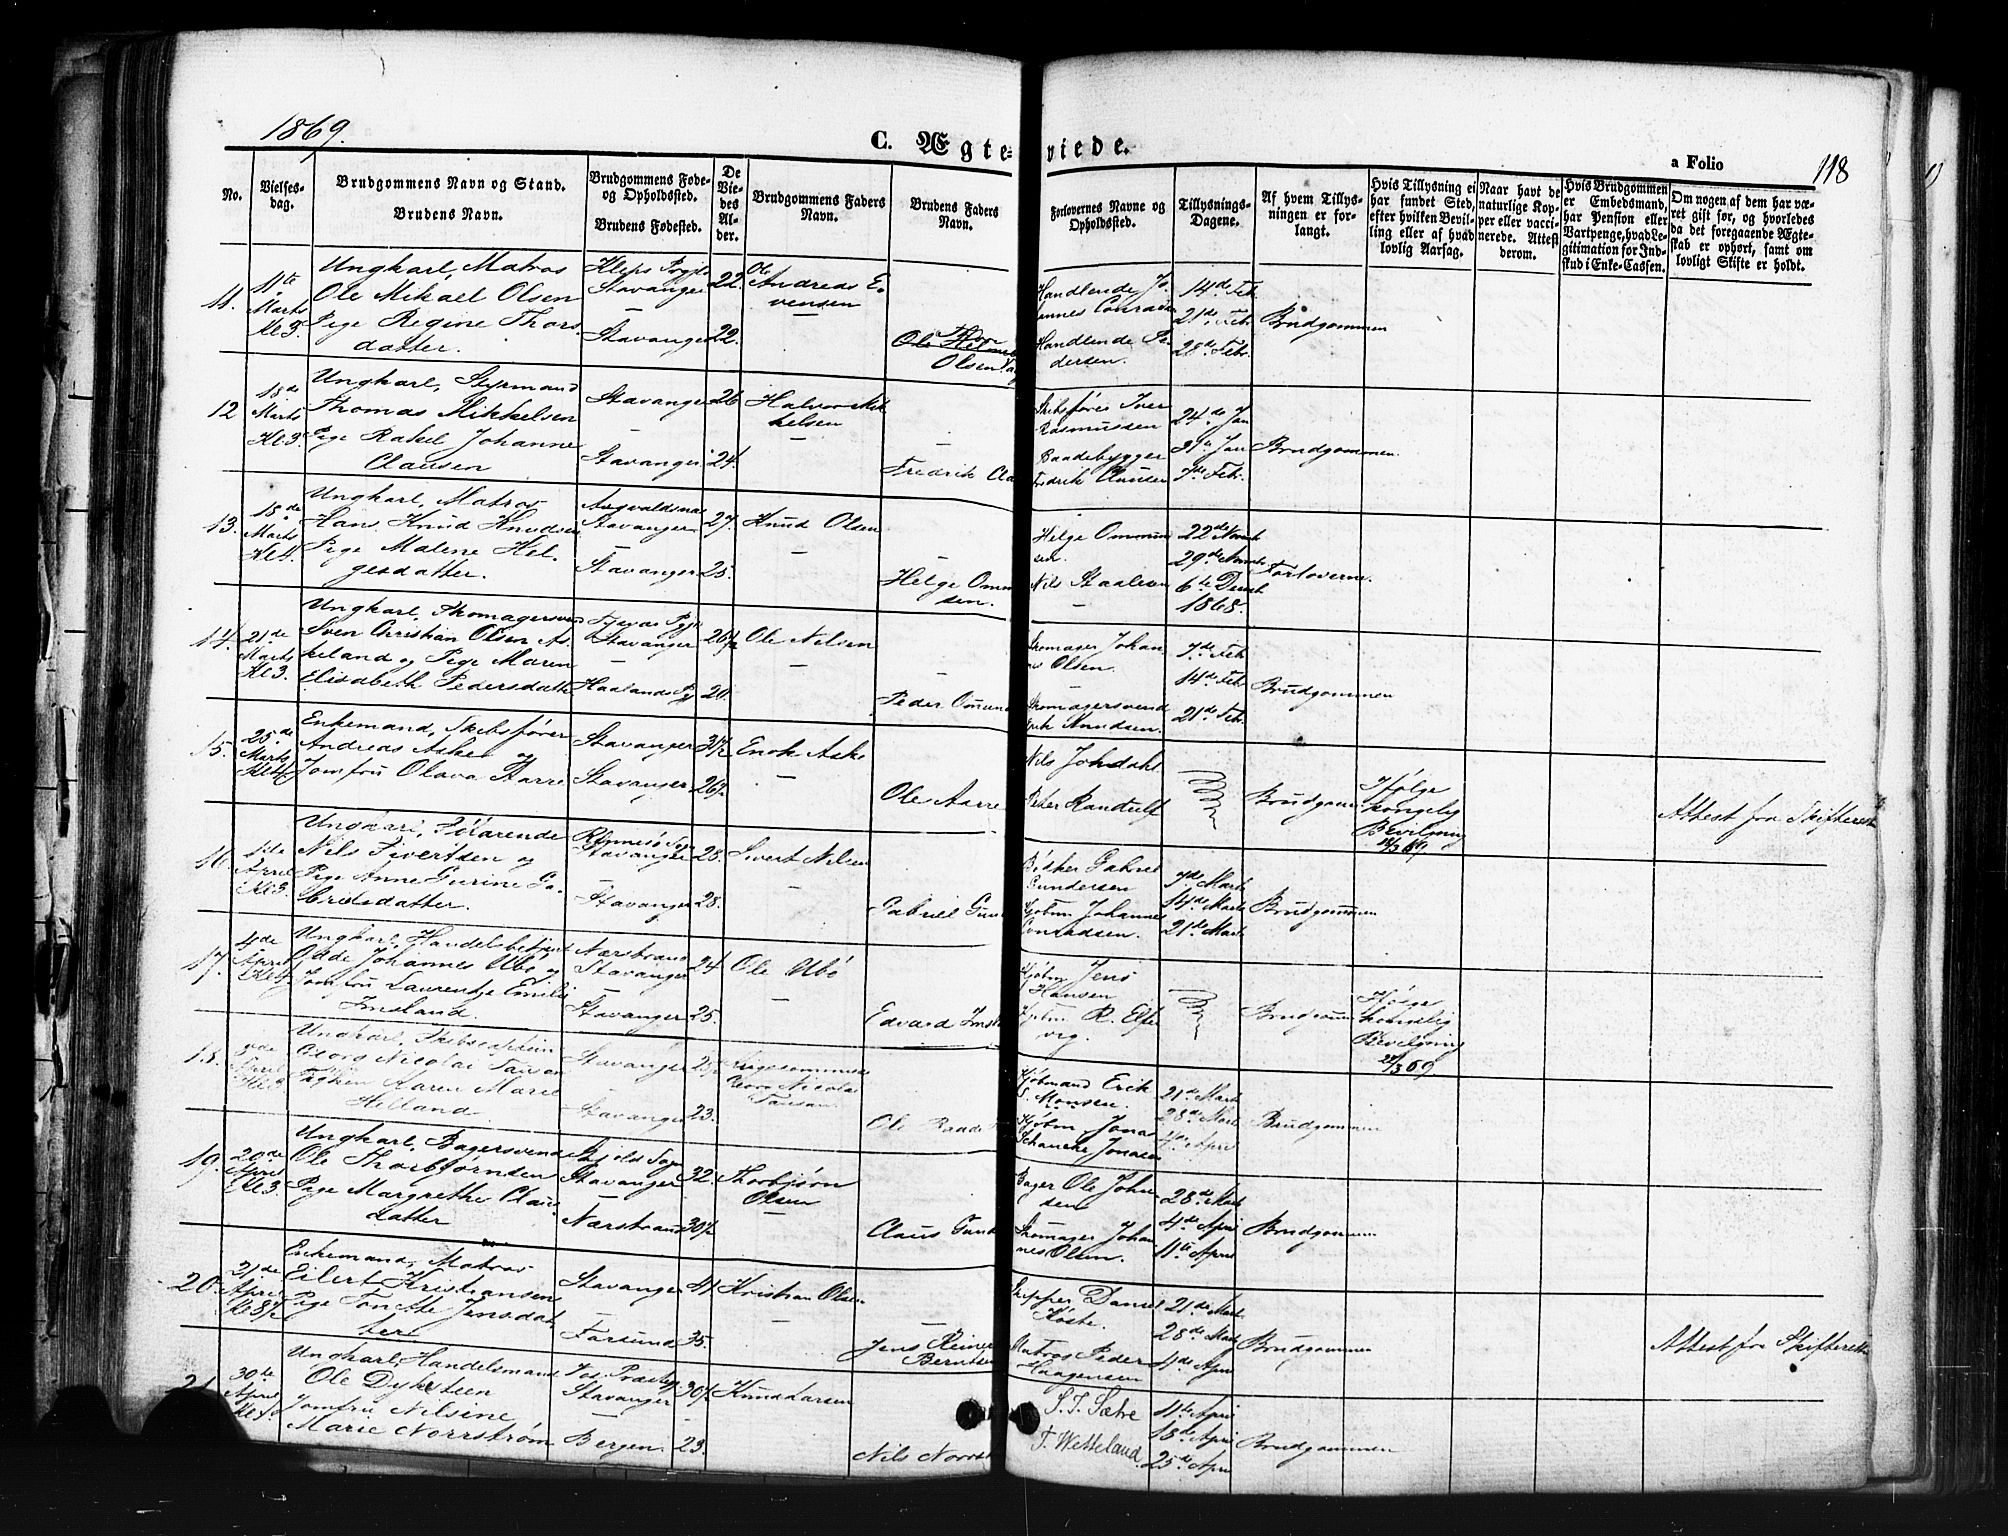 1869.
C. Ægteviede.
a Folio
118
No.
Vielses-dag.
Brudgommens Navn og Stand.
Brudens Navn.
Brudgommens Føde- og Opholdssted.
Brudens Fødested.
De Viedes Alder.
Brudgommens Faders Navn.
Brudens Faders Navn.
Forlovernes Navne og Opholdssted.
Tillysnings-Dagene.
Af hvem Tillysningen er forlangt.
Hvis Tillysning ei har fundet Sted, efter hvilken Bevilling eller af hvad lovlig Aarsag.
Naar havt de naturlige Kopper eller vaccinerede. Attest derom.
Hvis Brudgommen er Embedsmand, har Pension eller Vartpenge, hvad Legitimation for Indskud i Enke-Cassen.
Om nogen af dem har været gift før, og hvorledes da det foregaaende Ægteskab er ophørt, samt om lovligt Skifte er holdt.
11.
11te Marts Kl 3.
Ungkarl, Matros
Ole Mikael Olsen
Pige Regine Thors
datter.
Stavanger
Stavanger
22.
22.
Ole Andreas E
vensen
Olsen
Handlende Jo
annes Conradsen
Handlende Pe
dersen.
14de Feb.
21de Feb.
28de Feb.
Brudgommen
12
18de Marts Kl 3.
Ungkarl, Styrmand
Thomas Mikkelsen
Pige Rakel Johanne
Clausen
Stavanger
Stavanger
26
24.
Halvor Mik
kelsen
Fredrik Cla
Skibsfører Iver
Rasmussen
Baadebygger
Fredrik Clausen
24de Jan
31te Jan
7de Feb.
Brudgommen
13.
18de Marts Kl 4.
Ungkarl, Matros
Hans Knud Knudsen
Pige Malene Hel
gesdatter.
Augvaldsnæs
Stavanger
Stavanger
27.
25.
Knud Olsen
Helge Omm
sen.
Helge Ommun
sen.
Nils Staalesen
22de Novb
29de Novb
6te Decb
1868.
Forloverne.
14.
21de Marts Kl 3.
Ungkarl, Skomagersvend
Sven Christian Olsen As
keland og Pige Maren
Elisabeth Pedersdatter
Stavanger
Haalands Pgj
26½
20.
Ole Nilsen
Peder Omund
Skomager Johan
nes Olsen.
Skomagersvend
Erik Knudsen.
7de Feb
14de Feb
21de Feb.
Brudgommen
15.
25de Marts Kl 4½
Enkemand, Skibsfører
Andreas Aske og
Jomfru Olava Aarre
Stavanger
Stavanger
31½
26½
Enok Aske
Ole Aarre
Nils Johdahl
Peter Randulf
Brudgom
Ifølge
kongelig
Bevilgning
18/3 69
Attest fra Skifteret
16.
1ste April Kl 3
Ungkarl, Søfarende
Nils Sivertsen og
Pige Anne Gurine Ga
brielsdatter.
Rennesø Sogn
Stavanger
Stavanger
28.
28.
Sivert Nilsen
Gabriel Gund
Bødker Gabriel
Gundersen
Kjøbm Johannes
Conradsen.
7de Marts
14de Marts
21de Marts
Brudgommen
17.
4de April Kl 4½
Ungkarl, Handelsbetjent
Odde Johannes Ubø og
Jomfru Laurentze Emilie
Imsland.
Nærstrand
Stavanger
Stavanger
24
25.
Ole Ubø
Edvard Imsl
Kjøbm Jens
Hansen
Kjøbm R. Elle
vig.
Brudgom
Ifølge
kongelig
Bevilgning
22/3 69.
18.
April
Ungkarl, Skibscaptein
Georg Nicolai Tausan
Frøken Karen Marie
Helland
Stavanger
Stavanger
23.
Georg Nicolai
Tausan
Ole Raade
Kjøbmand Erik
S. Monsen.
Kjøbm Jonas
Schancke Jonasen
21de Marts
28de Marts
4de April
Brudgommen
19.
20de April Kl 3.
Ungkarl, Bagersvend
Ole Thorbjørnsen
Pige Margrethe Claus
datter
Skjold Sogn
Stavanger
Nærstrand
32.
30½
Thorbjørn
Olsen
Claus Gund
Bager Ole John
sen
Skomager Johan
nes Olsen.
28de Marts
4de April
11te April
Brudgommen
20.
21de April Kl 8½
Enkemand, Matros
Eilert Kristiansen
Pige Tonette Jensdat
ter
Stavanger
Farsund
41
35.
Kristian Olsen
Jens Reiner
Berntsen
Skipper Daniel
Køste.
Matros Peder
Haagensen
21de Marts
28de Marts
4de April
Brudgommen
Attest fra Skifteret
21.
30te April
Ungkarl, Handelsmand
Ole Dyksteen
Jomfru Nilsine
Marie Norrstrøm
Voss Præstg
Stavanger
Bergen.
30½
23.
Knud Larsen
Nils Norrst
S. T. Sætre
T. Wetteland.
11te April
18de April
25de April
Brudgommen